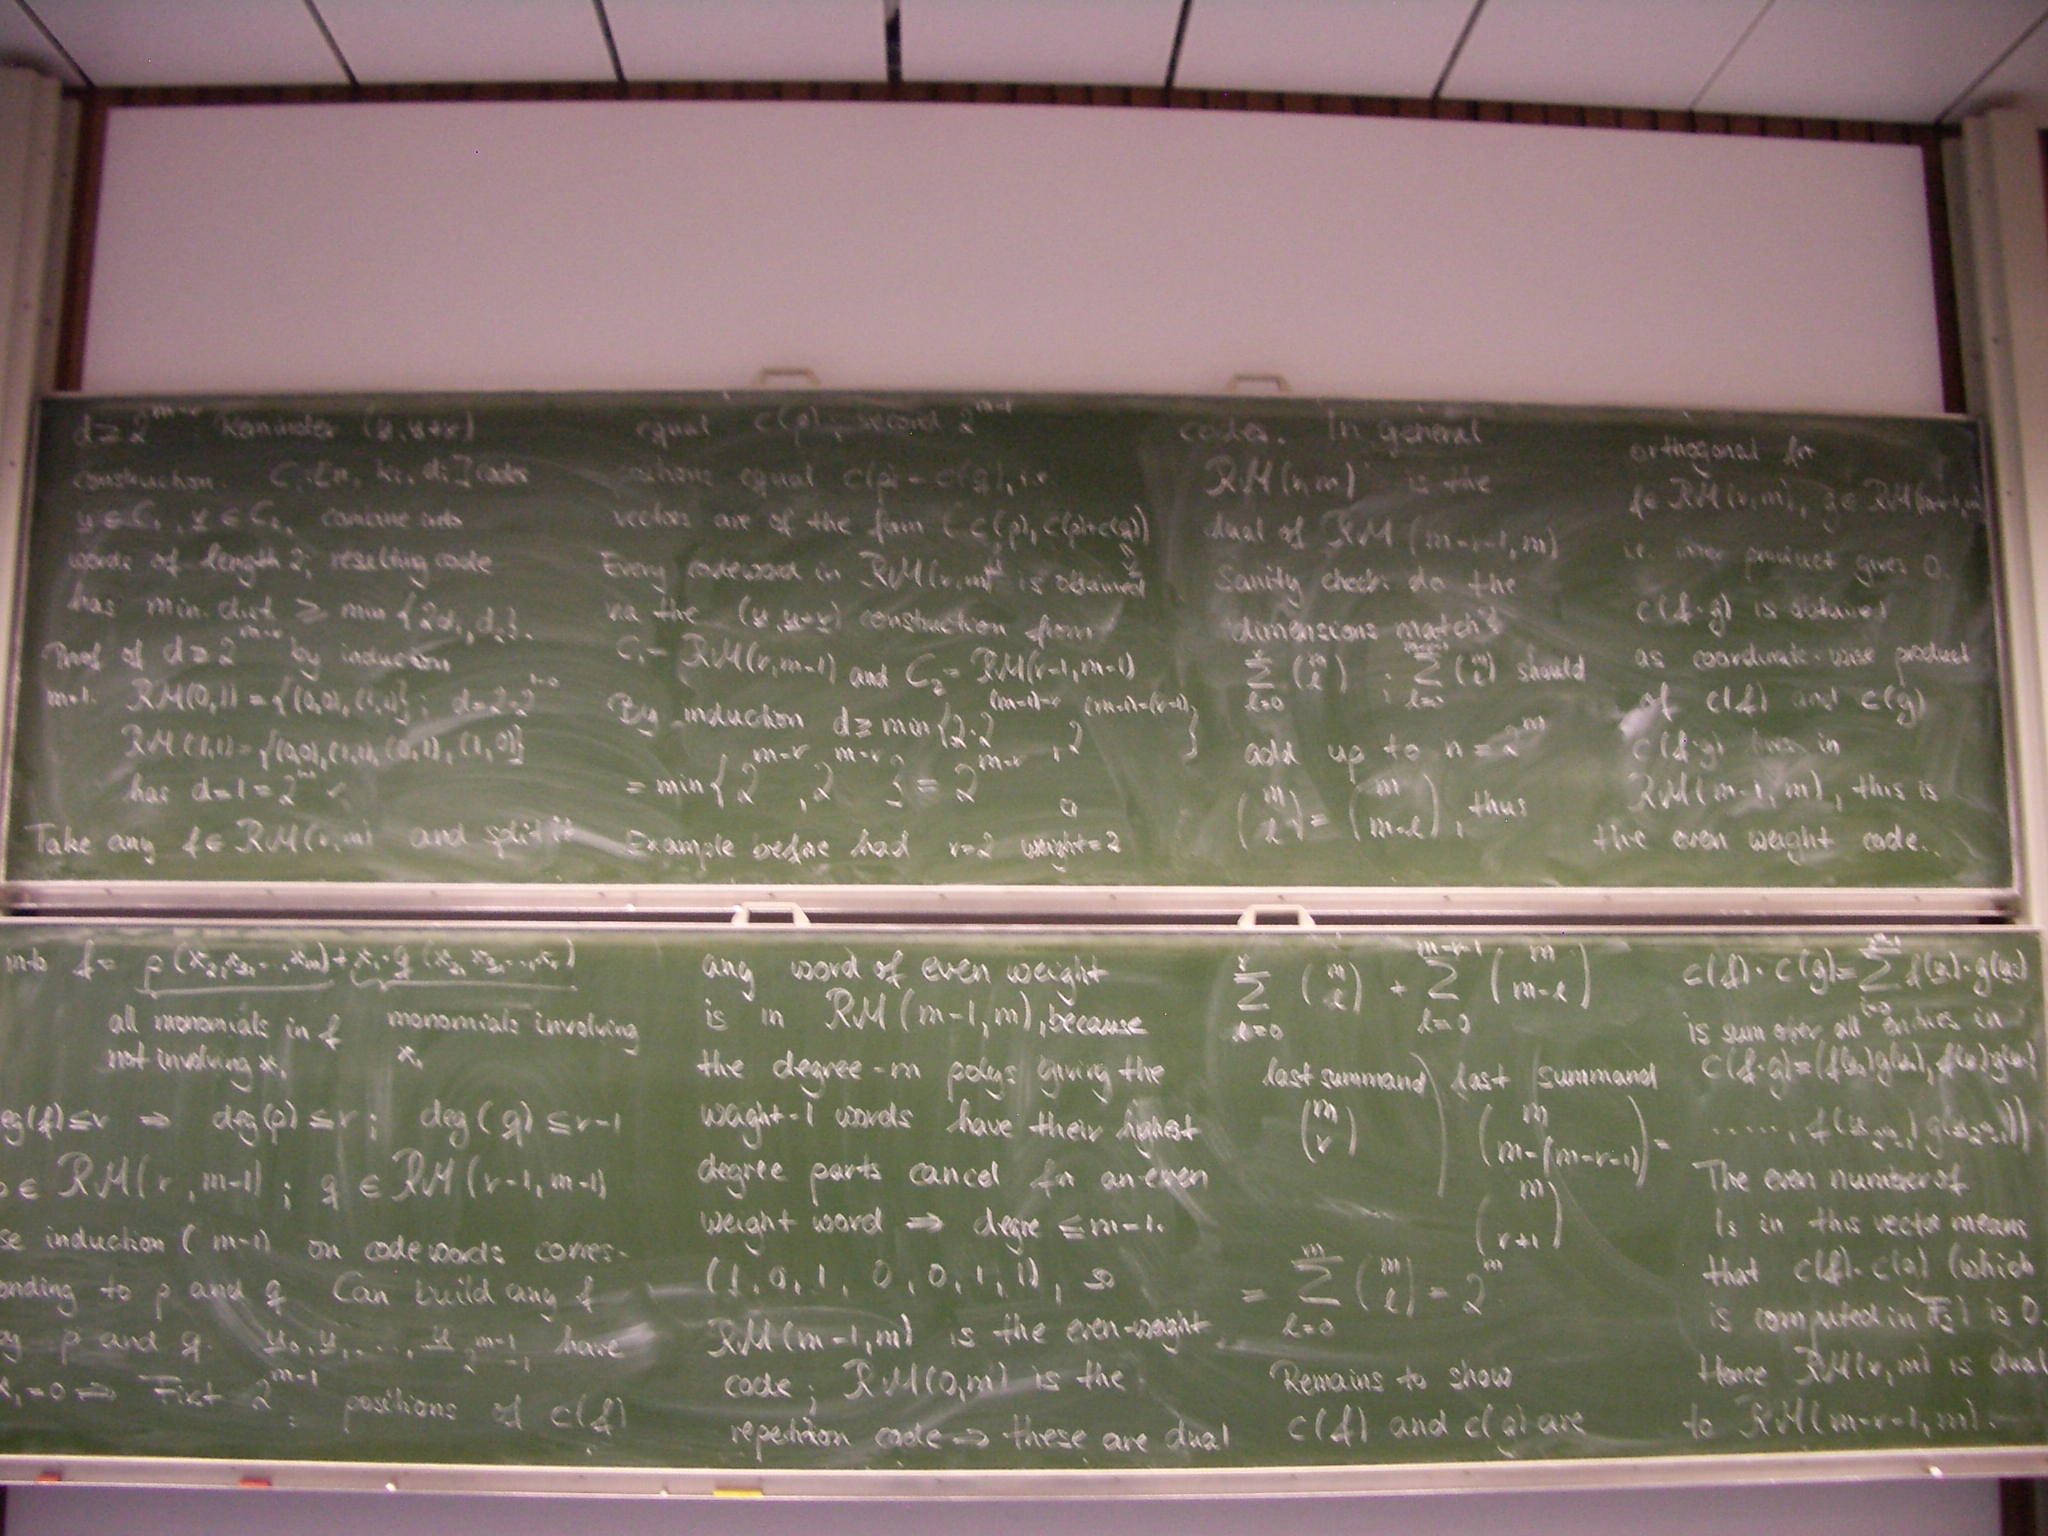 d ≥ 2^{m-r}. Reminder (u, u+v)
construction. C_i [n, k_i, d_i] codes
u ∈ C_1, v ∈ C_2, combine into
words of length 2; resulting code
has min. dist ≥ min {2d_1, d_2}.
Proof of d ≥ 2^{m-r} by induction
m=1. RM(0,1) = {(0,0), (1,1)}; d=2=2^{1-0}
RM(1,1) = {(0,0), (1,1), (0,1), (1,0)}
has d=1=2^{1-1} ✓
Take any f ∈ RM(r,m) and split it
into f = p(x_2, x_3, ..., x_m) + x_1·q(x_2, x_3, ..., x_r)
all monomials in f monomials involving
not involving x_1 x_1
deg(f) ≤ r ⇒ deg(p) ≤ r; deg(q) ≤ r-1
p ∈ RM(r, m-1); q ∈ RM(r-1, m-1)
induction (m-1) on codewords corres-
ponding to p and q Can build any f
p and q. u_0, u_1, ..., u_{2^{m-1}-1} have
x_1=0 ⇒ First 2^{m-1} positions of c(f)
equal c(p); second 2^{m-1}
equal c(p) + c(q), i.e.
vectors are of the form (c(p), c(p)+c(q))
Every codeword in RM(r,m) is obtained
via the (u, u+v) construction from
C_1 = RM(r,m-1) and C_2 = RM(r-1,m-1)
By induction d ≥ min{2·2^{(m-1)-r}, 2^{(m-1)-(r-1)}}
= min{2^{m-r}, 2^{m-r}} = 2^{m-r} □
Example before had r=2 weight=2
any word of even weight
is in RM(m-1,m), because
the degree-m polys giving the
weight-1 words have their highest
degree parts cancel for an even
weight word ⇒ degre ≤ m-1.
(1, 0, 1, 0, 0, 1, 1), so
RM(m-1,m) is the even-weight
code; RM(0,m) is the
repetition code ⇒ these are dual
codes. In general
RM(r,m) is the
dual of RM(m-r-1,m)
Sanity check: do the
dimensions match?
∑_{l=0}^{r} (m l) ; ∑_{l=0}^{m-r-1} (m l) should
add up to n = 2^m
(m l) = (m m-l), thus
∑_{l=0}^{r} (m l) + ∑_{l=0}^{m-r-1} (m m-l)
last summand last summand
(m r) (m m-(m-r-1)) =
(m r+1)
= ∑_{l=0}^{m} (m l) = 2^m
Remains to show
c(f) and c(g) are
orthogonal for
f ∈ RM(r,m), g ∈ RM(m-r-1,m)
i.e. inner product gives 0.
c(f·g) is obtained
as coordinate-wise product
of c(f) and c(g)
c(f·g) lives in
RM(m-1,m), this is
the even weight code..
c(f)·c(g) = ∑_{i=0}^{2^m-1} f(u_i)·g(u_i)
is sum over all entries in
c(f·g) = (f(u_0)g(u_0), f(u_1)g(u_1)
....., f(u_{2^m-1})g(u_{2^m-1}))
The even number of
1s in this vector means
that c(f)·c(g) (which
is computed in F_2) is 0.
Hence RM(r,m) is dual
to RM(m-r-1,m).